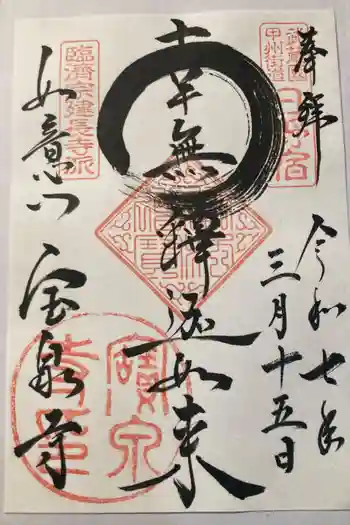 奉拝
武蔵国
甲州街道
日野宿
令和七年
三月十五日
南無釋迦如来
臨済宗建長寺派
如意山 宝泉寺
寶泉